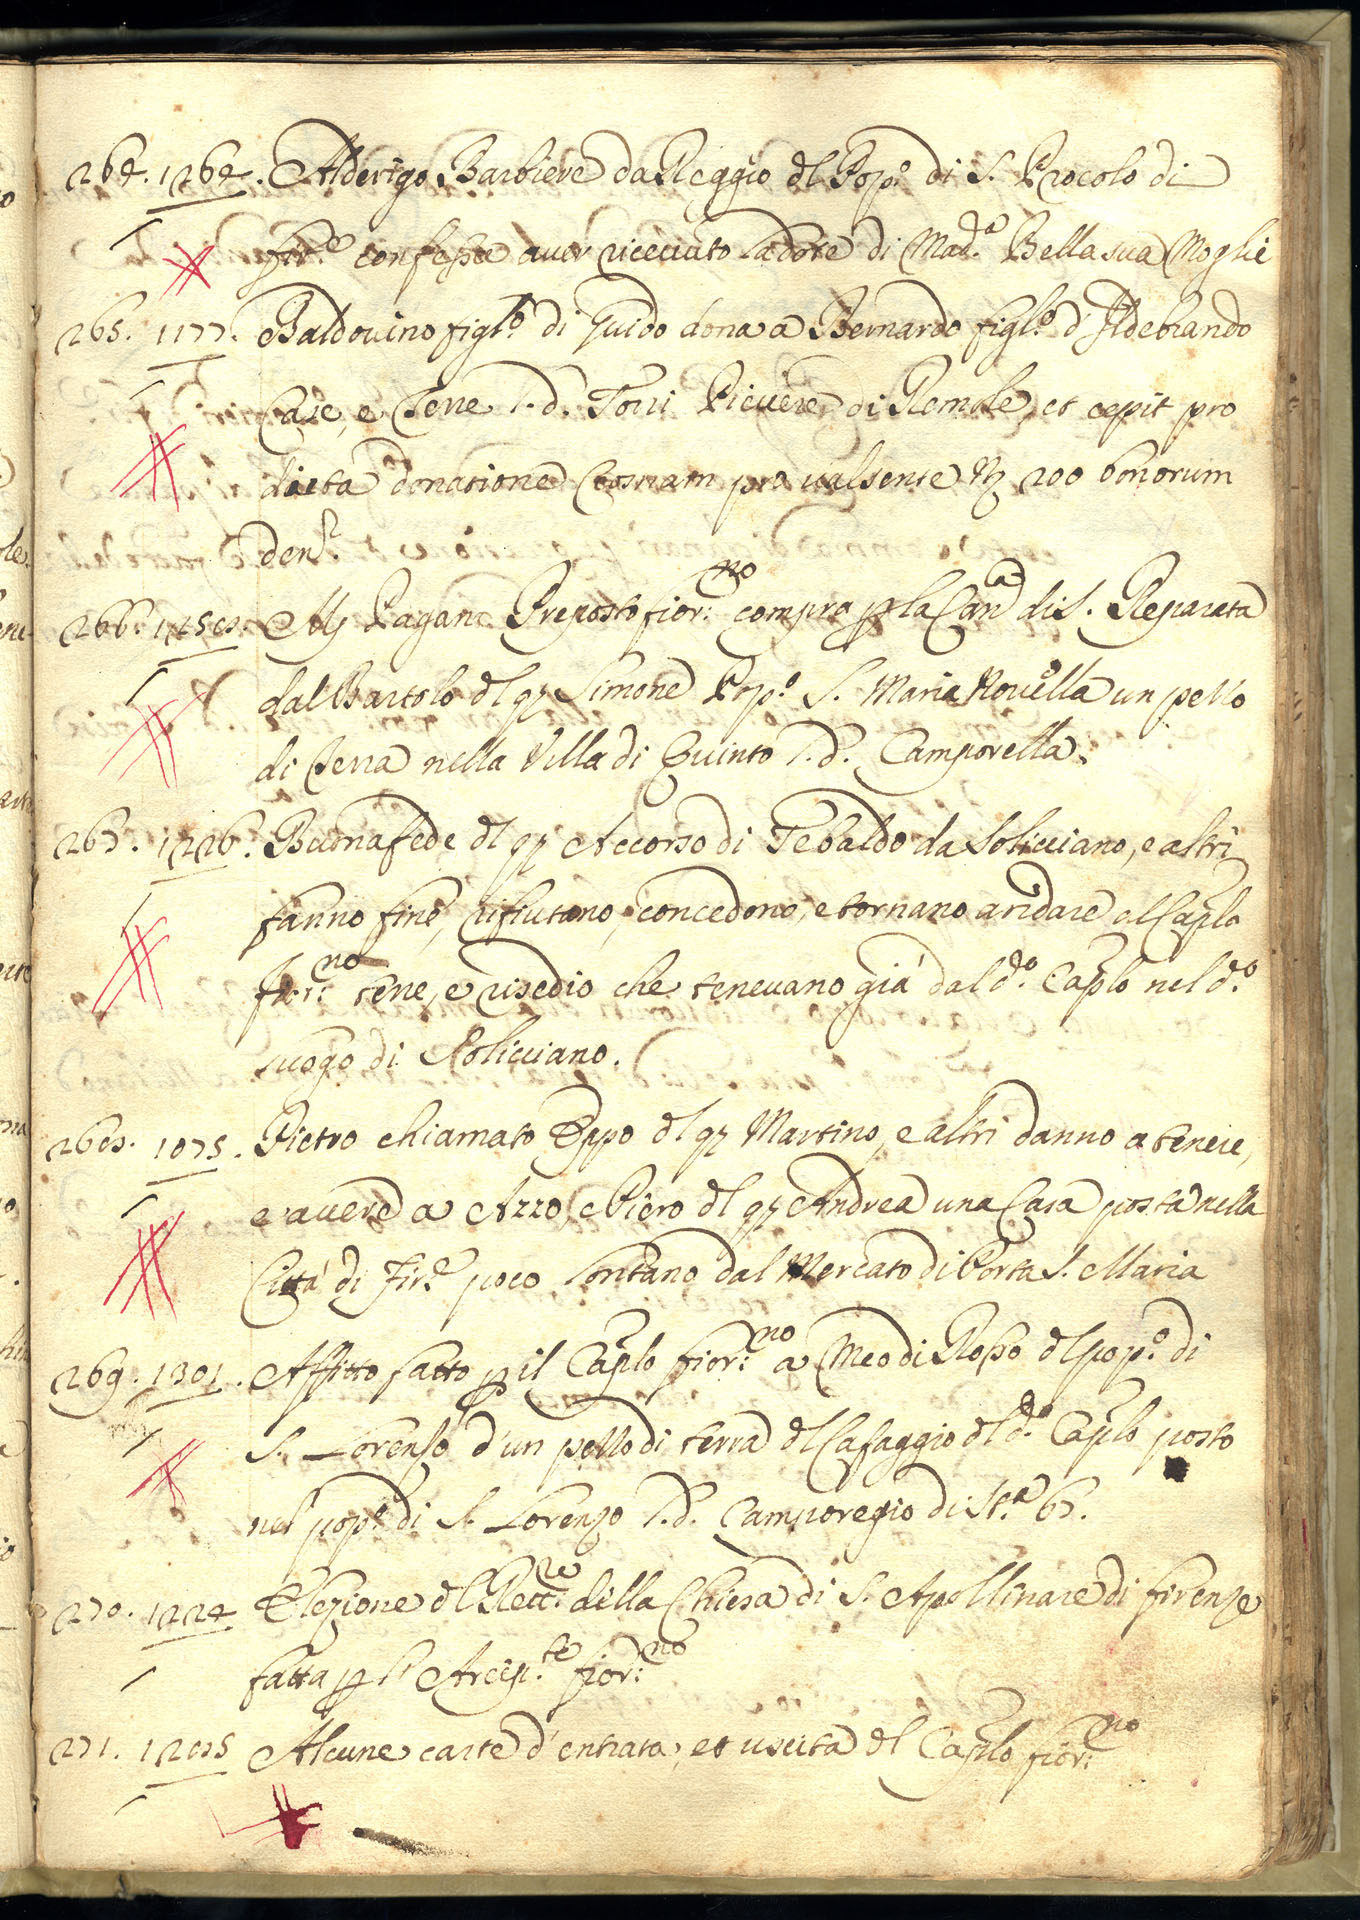 264. 1264. Alderigo Barbiere da Reggio del Pop.o di S. Procolo di
fir.e confessa aver ricevuto la dote di Mad.a Bella sua Moglie
265. 1177. Baldovino figl.o di Guido dona a Bernardo figl.o d'Ildebrando
Case, e Terre l. d. Torri Piviere di Remole, et cepit pro
dicta donatione Crosnam pro valsente 200 bonorum
den.
266. Mess. Pagano Preposto fior:no compra p la Can.a di S. Reparata
dal Bartolo del q Simone Pop.o S. Maria Novella un pezzo
di Terra nella Villa di Quinto l. d. Camporella.
267. 1226. Buonafede del q Accorso di Tebaldo da Solicciano, e altri
fanno fine, rifiutano, concedono, e tornano a ridare al Caplo
fior:no terre, e resedio che tenevano già dal d.o Caplo nel d.o
luogo di Solicciano.
268. 1075. Pietro chiamato Eppo del q Martino, e altri danno a tenere,
e avere a Azzo e Piero del q Andrea una Casa posta nella
Città di Fir.e poco lontano dal Mercato di Porta S. Maria
269. 1301. Affitto fatto p il Caplo fior:no a Meo di Rosso del pop.o di
S. Lorenzo d'un pezzo di terra del Cafaggio del d.o Caplo posto
nel pop.o di S. Lorenzo l. d. Camporegio di St.a 67.
270. 1224 Elezione del Rett:re della Chiesa di S. Apollinare di firenze
fatta p l'Arcip.te fior:no
271. Alcune carte d'entrata, et uscita del Caplo fior:no